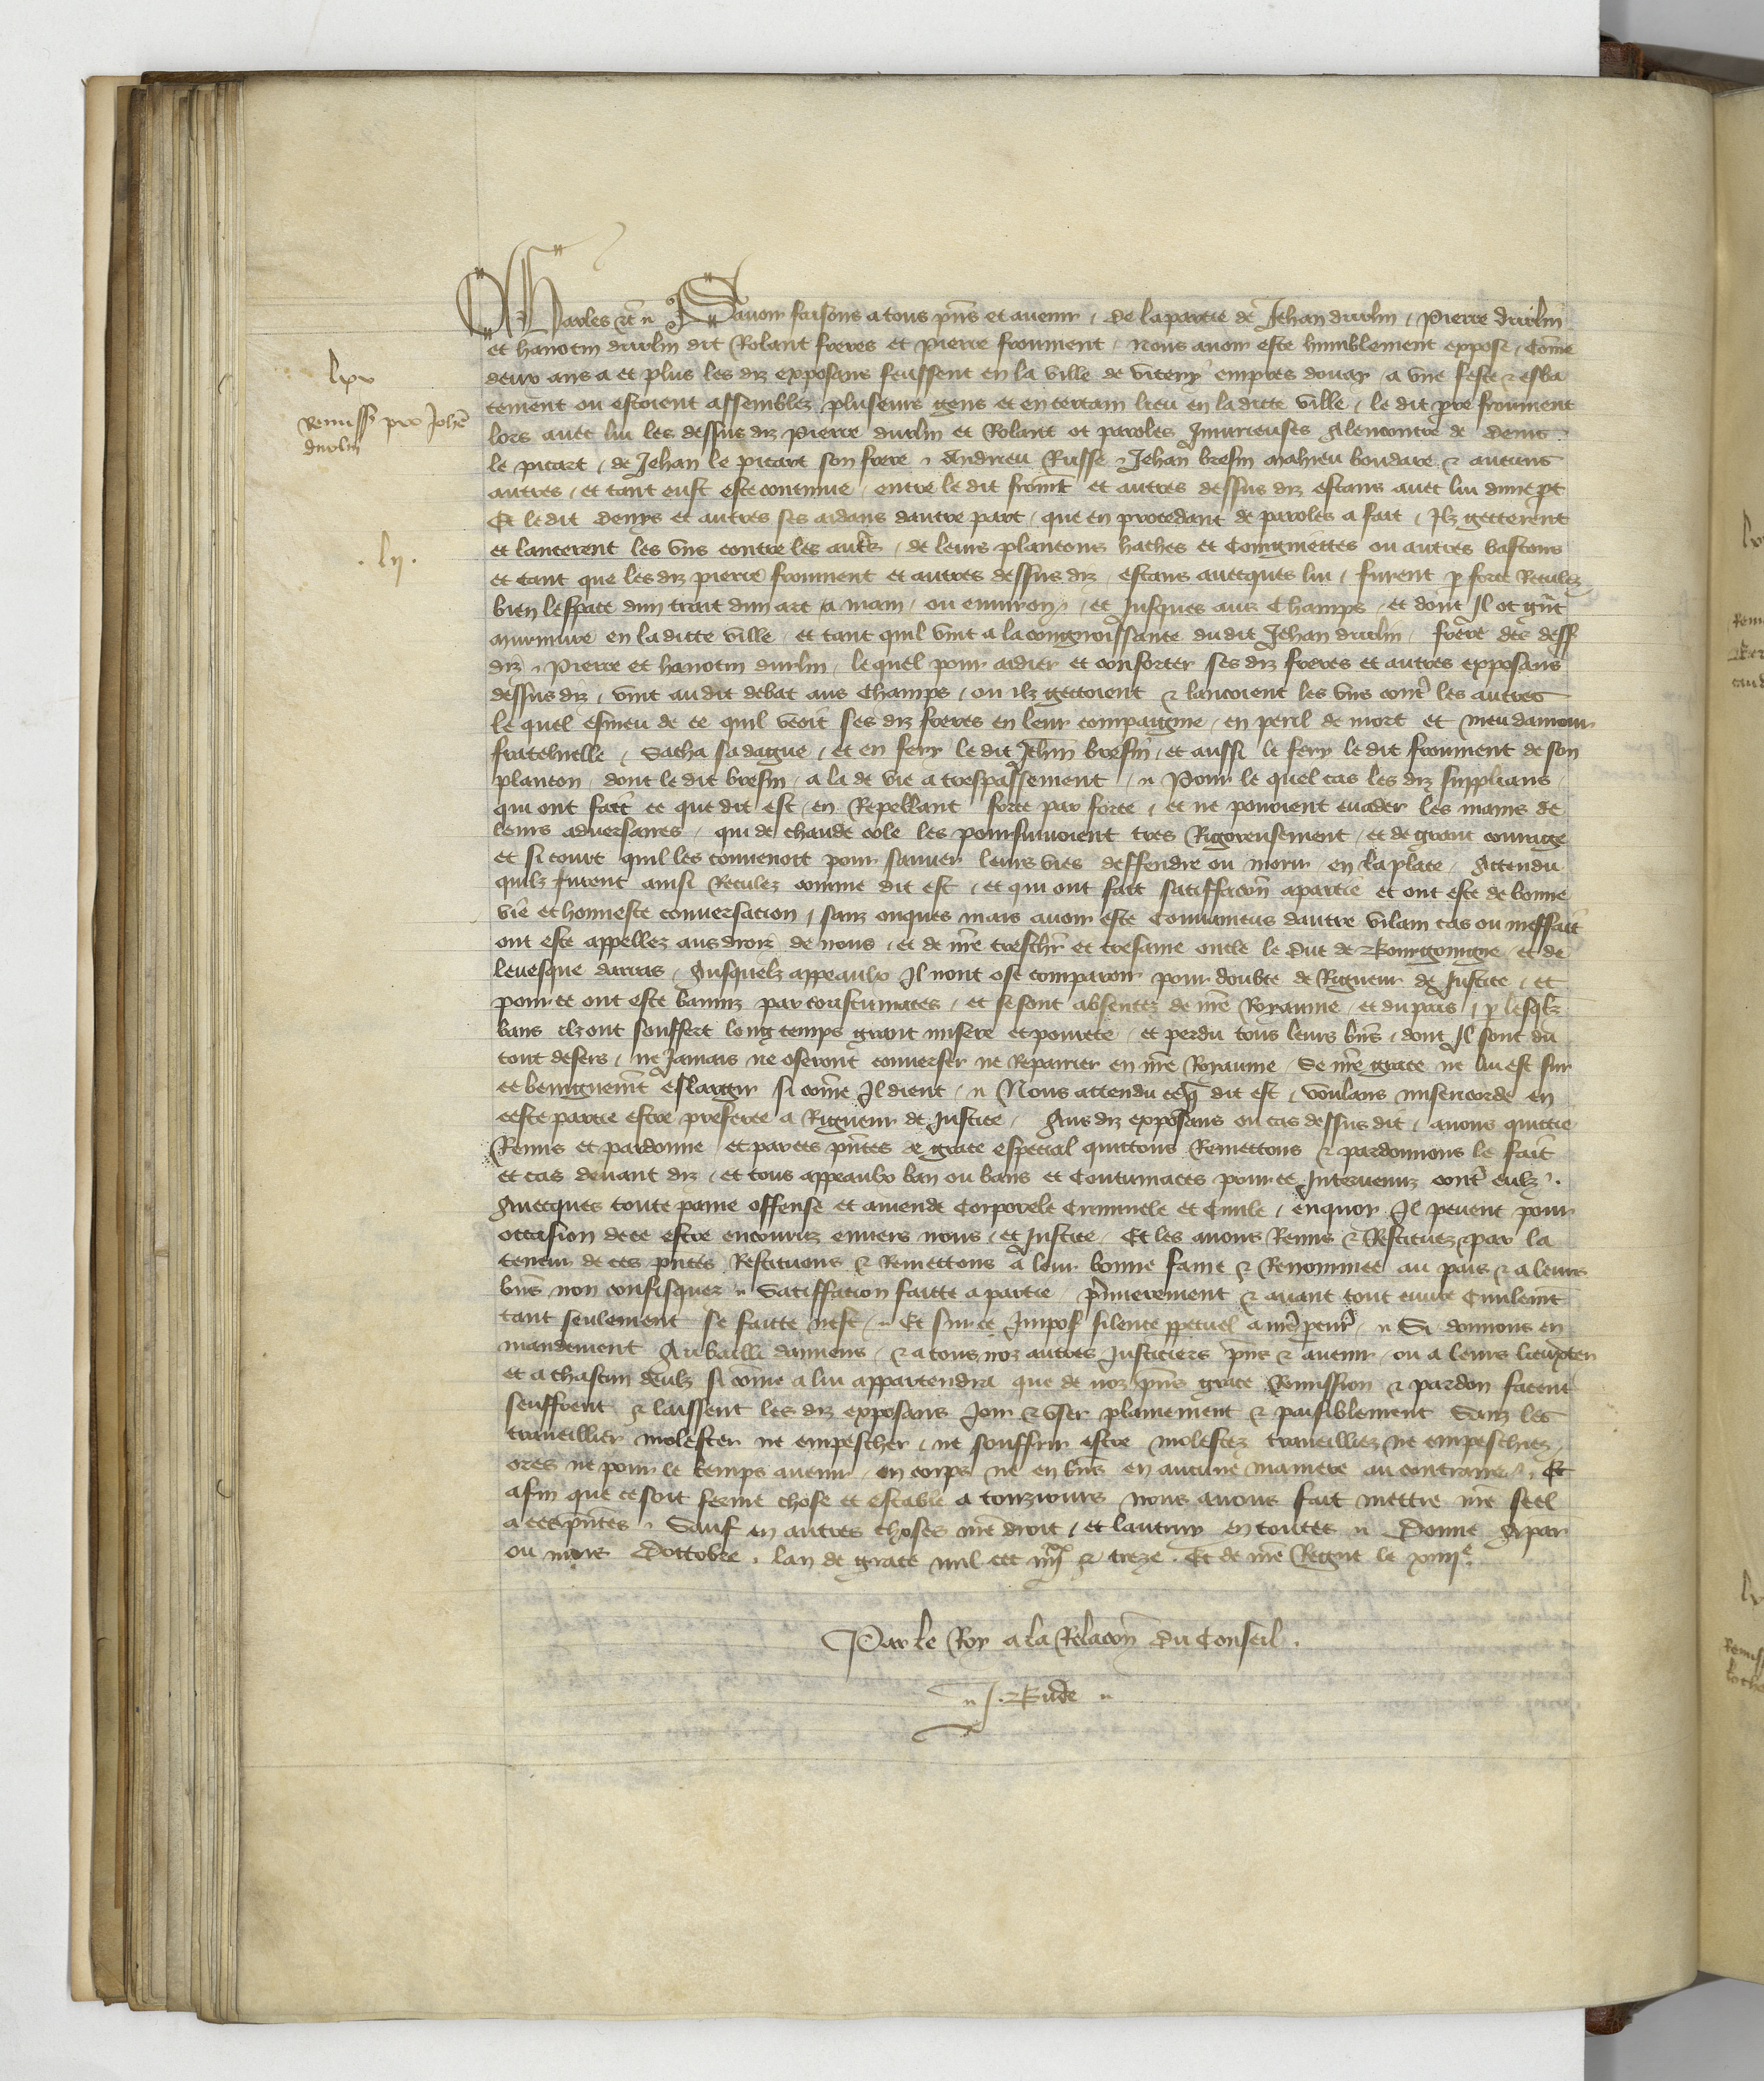 Charles etc Savoir faisons a tous pns et avenir / de la partie de Jehan durlin / Pierre durlin
et hanotin durlin dit Rolant freres et pierre froument / nous avoir este humblement expose / Come
deux ans a et plus les diz exposans feussent en la ville de vitery empres douay a une feste & esba
lxv
tement ou estoient assemblez pluseurs gens et en certain lieu en la dicte ville / le dit pre froument
Remiss pro Johe
durlin
lors avec lui les dessus diz Pierre durlin et Rolant ot paroles Injurieuses A lencontre de denis
le picart / de Jehan le picart son frere / Andrieu Russe / Jehan bresin mahieu boudare & aucuns
autres / et tant eust este continue / entre le dit fromt et autres dessus diz estans avec lui dune pt
Et le dit Denys et autres ses aidans dautre part / que en procedant de paroles a fait / Ilz getterent
et lancerent les uns contre les autrs / de leurs plancons haches et Coingnettes ou autres bastons
.lij.
et tant que les diz pierre froument et autres dessus diz / estans avecques lui / furent p force Reculez
bien lespace dun trait dun arc a main / ou environ / et Jusques aus Champs / et dont Il ot gnt
murmure en la dicte ville / et tant quil vint a la congnoissance du dit Jehan durlin / frere des dess
diz / Pierre et hanotin durlin / le quel pour aidier et conforter ses diz freres et autres exposans
dessus diz / vint au dit debat aus Champs / ou ilz gettoient & lancoient les uns contr les autres
le quel esmeu de ce quil veoit ses diz freres en leur compaignie / en peril de mort et meu damour
fraternelle / Sacha sa dague / et en fery le dit Jehan bresin / et aussi le fery le dit froument de son
plancon / dont le dit bresin / a la de vie a trespassement / Pour le quel cas les diz supplians
qui ont fait ce que dit est / en Repellant force par force / et ne povoient evader les mains de
leurs adversaires / qui de chaude cole les poursuivoient tres Rigoreusement / et de grant courage
et si court quil les convenoit pour sauver leurs vies deffendre ou morir en la place / Attendu
quilz furent ainsi Reculez comme dit est / et qui ont fait satisfacon a partie et ont este de bonne
vie et honneste conversation / sanz onques mais avoir este Convaincus dautre vilain cas ou meffait
ont este appellez aus droiz de nous / et de nre treschr et tresame oncle le Duc de Bourgoingne et de
levesque darras / Ausquelz appeaulx Il nont ose comparoir pour doubte de Rigueur de Justice / et
pour ce ont este banniz par coustumaces / et se sont absentez de nre Royaume / et du pais / p lesqlz
bans ilz ont souffert long temps grant misere et povrete / et perdu tous leurs bns / dont Il sont du
tout desers / ne Jamais ne oseront converser ne Repairier en nre Royaume / Se nre grace ne lui est sur
ce benignemt eslargir si come Il dient / Nous attendu ce q dit est / voulans misericorde en
ceste partie estre preferee a Rigueur de Justice / Aus diz exposans ou cas dessus dit / avons quictie
Remis et pardonne / et par ces pntes de grace especial quittons Remettons & pardonnons le fait
et cas devant diz / et tous appeaulx ban ou bans et Contumaces pour ce Intervenuz contr eulz /
Avecques toute paine offense et amende Corporele Criminele et Civile / en quoy Il pevent pour
occasion de ce estre encouruz envers nous / et Justice / Et les avons Remis & Restituez & par la
teneur de ces pntes Restituons & Remettons a leur bonne fame & Renommee au pais & a leurs
bns non confisquez / Satisffation faicte a partie / prmierement & avant tout euvre Civilemt
tant seulement se faicte nest / Et sur ce Impos silence ppetuel a nre pcur / Si donnons en
mandement Au bailli damiens / & a tous noz autres Justiciers pns & avenir / ou a leurs lieuxten
et a chascun deulz si come a lui appartendra que de noz pns grace Remission & pardon facent
seuffrent & laissent les diz exposans Joir & user plainement & paisiblement Sanz les
traveillier molester ne empescher / ne souffrir estre molestez traveilliez ne empeschiez
ores ne pour le temps avenir / en corps ne en bns en aucune maniere au contraire / Et
afin que ce soit ferme chose et estable a touzjours nous avons fait mettre nre seel
a ces pntes / Sauf en autres choses nre droit / et lautruy en toutes / Donne A par
ou mois Doctobre / lan de grace mil ccc iiijxx & treze / Et de nre Regne le xiiije
Par le Roy a la Relacon du Conseil .
J. Bude